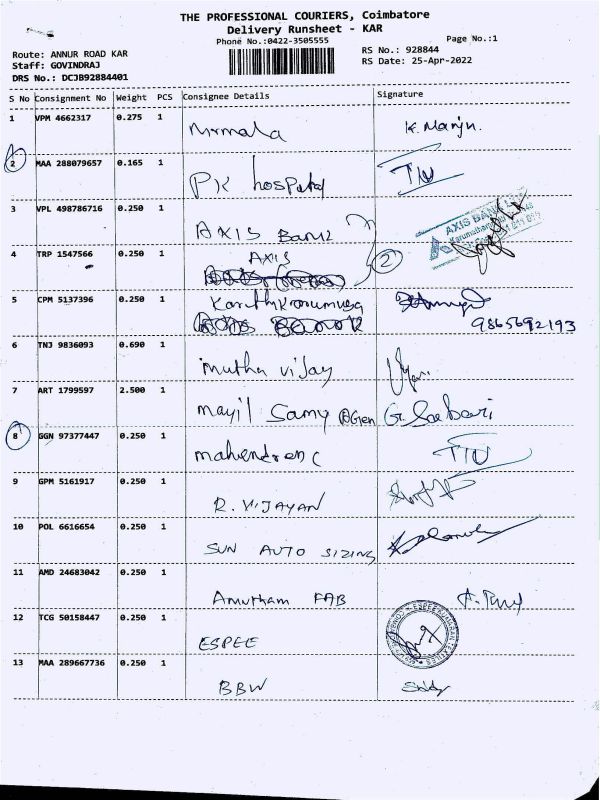 THE PROFESSIONAL COURIERS, Coimbatore
Delivery Runsheet - KAR
Phone No.:0422-3505555
Page No.:1
Route: ANNUR ROAD KAR
RS No.: 928844
Staff: GOVINDRAJ
RS Date: 25-Apr-2022
DRS No.: DCJB92884401
S No Consignment No Weight PCS Consignee Details Signature
1 VPM 4662317 0.275 1 Nirmala K. Manju.
2 MAA 288079657 0.165 1 PK hospital TIN
3 VPL 498786716 0.250 1 AXIS Bank AXIS BANK
4 TRP 1547566 0.250 1 AXIS 2
5 CPM 5137396 0.250 1 9865692193
6 TNJ 9836093 0.690 1 muthu vijay
7 ART 1799597 2.500 1 mayil Samy G. Sabari
8 GGN 97377447 0.250 1 mahendran C TIN
9 GPM 5161917 0.250 1 R. VIJAYAN
10 POL 6616654 0.250 1 SUN AUTO SIZING
11 AMD 24683042 0.250 1 Amutham FAB
12 TCG 50158447 0.250 1 ESPEE
13 MAA 289667736 0.250 1 BBW